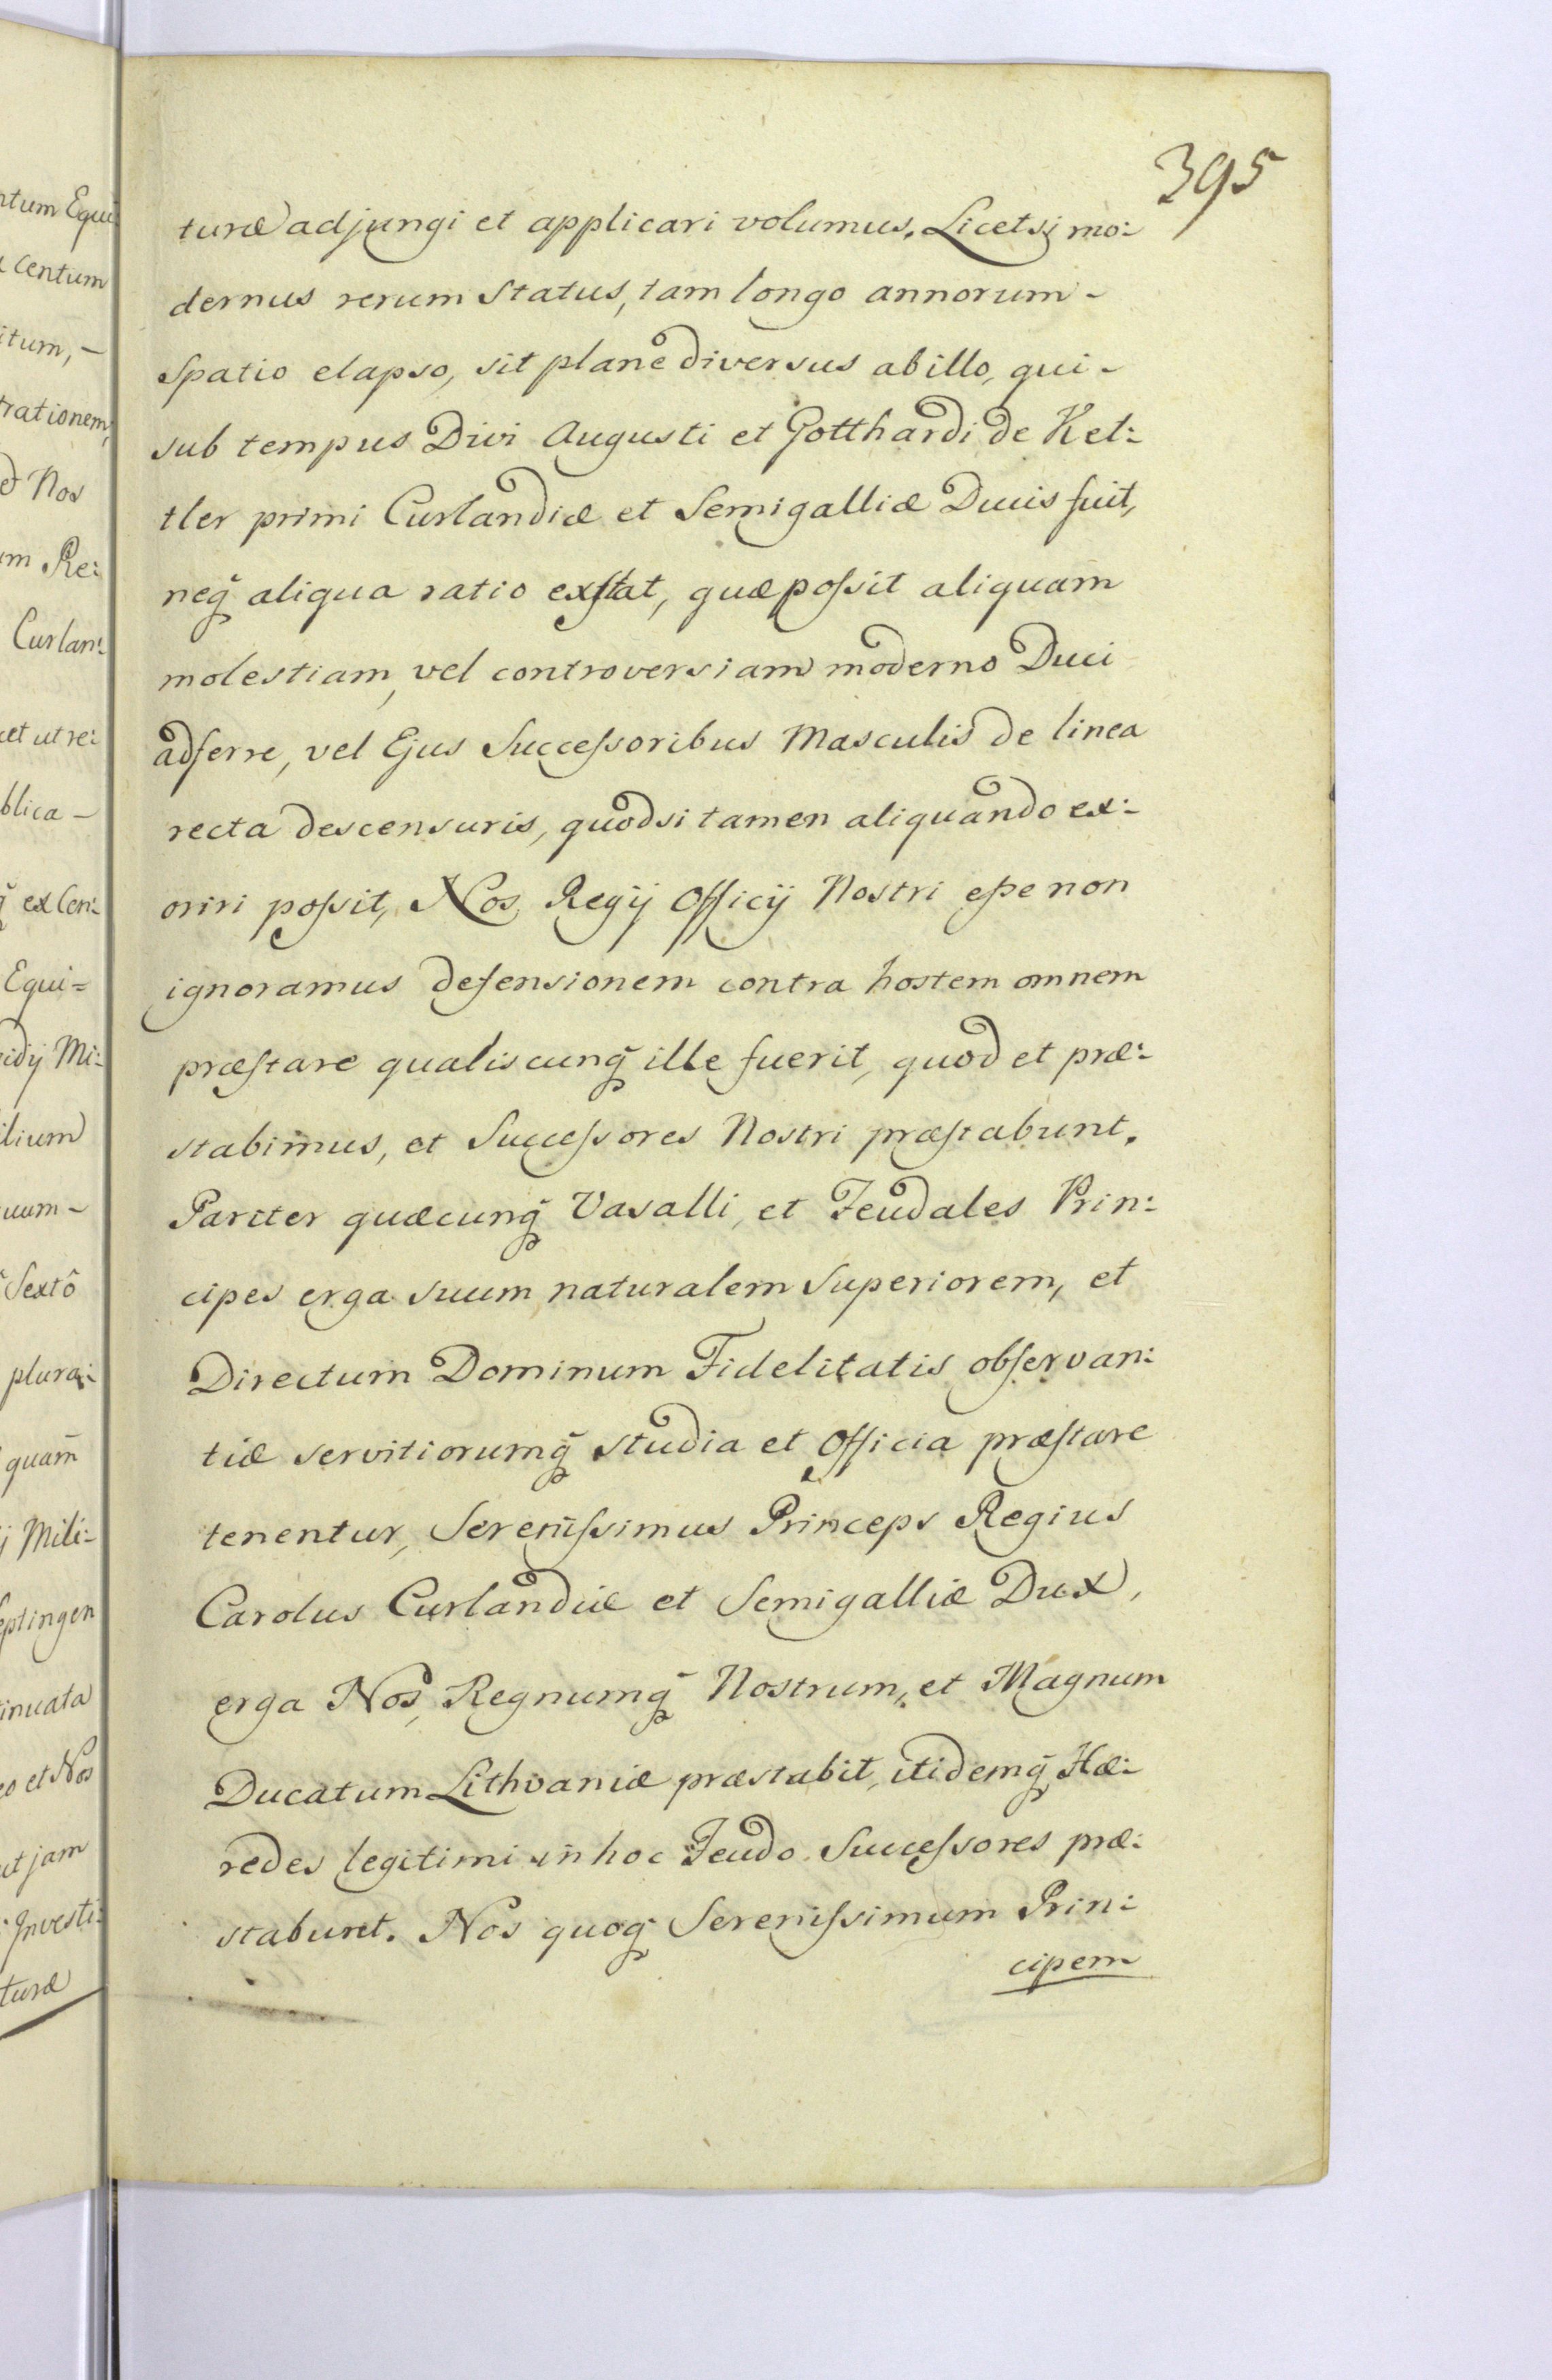 395
turæ adjungi et applicari volumus. Licet si mo:
dernus rerum Status, tam longo annorum -
Spatio elapso, sit planè diversus ab illo, qui -
sub tempus Divi Augusti et Gotthardi de Ket:
tler primi Curlandiæ et Semigalliæ Ducis fuit,
neq̃ aliqua ratio exstat, quæ poſsit aliquam
molestiam, vel controversiam moderno Duci
adferre, vel Ejus Succeſsoribus Masculis de linea
recta descensuris, quodsi tamen aliquando ex:
oriri poſsit, Nos Regij Officij Nostri eſse non
ignoramus defensionem contra hostem omnem
præſtare qualiscunq̃ ille fuerit, quod et præ:
stabimus, et Succeſsores Nostri præſtabunt.
Pariter quæcunq̃ Vasalli, et Feudales Prin:
cipes erga suum naturalem Superiorem, et
Directum Dominum Fidelitatis obſervan:
tiæ servitiorumq̃ studia et Officia præſtare
tenentur, Sereniſsimus Princeps Regius
Carolus Curlandiæ et Semigalliæ Dux,
erga Nos, Regnumq̃ Nostrum, et Magnum
Ducatum Lithvaniæ præstabit, itidemq̃ Hæ:
redes legitimi in hoc Feudo Succeſsores præ:
stabunt. Nos quoq̃ Sereniſsimum Prin:
cipem
ntum Equi
centum
itum, -
trationem,
d Nos
um Re:
Curlan:
et ut re:
blica -
q̃ ex Cen:
Equi=
idij Mi:
ilium
uum -
Sextô
plura:
quam̃
j Mili:
eptingen
inuata
eo et Nos
ut jam
Investi:
turæ